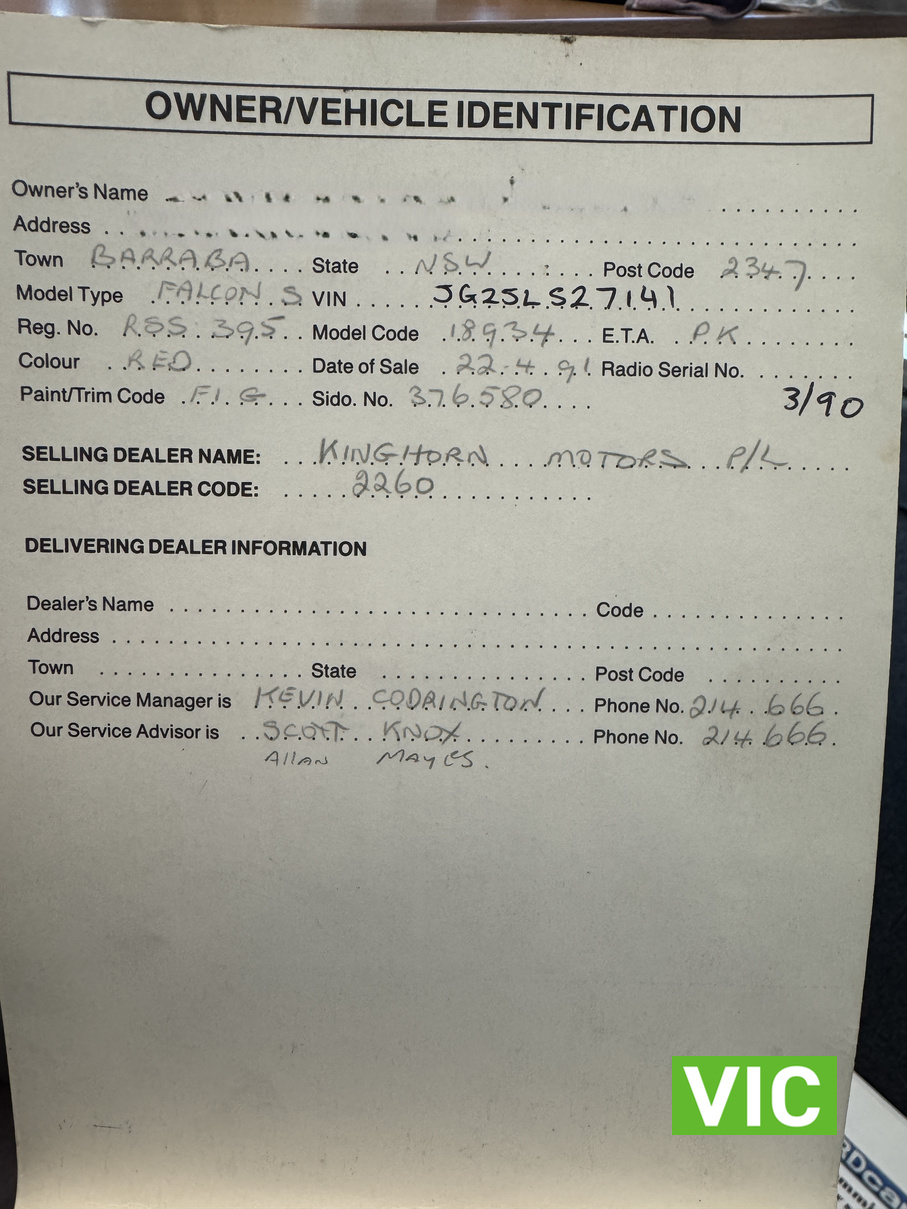 OWNER/VEHICLE IDENTIFICATION
Owner's Name
Address
Town BARRABA State NSW Post Code 2347
Model Type FALCON S VIN JG25LS27141
Reg. No. RSS.395 Model Code 18934 E.T.A. PK
Colour RED Date of Sale 22.4.91 Radio Serial No.
Paint/Trim Code F1.G Sido. No. 376580 3/90
SELLING DEALER NAME: KINGHORN MOTORS P/L
SELLING DEALER CODE: 2260
DELIVERING DEALER INFORMATION
Dealer's Name Code
Address
Town State Post Code
Our Service Manager is KEVIN CODRINGTON Phone No. 214.666
Our Service Advisor is SCOTT KNOX Phone No. 214.666
Allan MAYES.
VIC